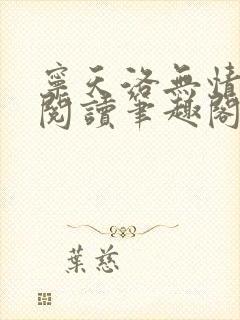 寧天洛無情
閱讀筆趣閣
葉慈